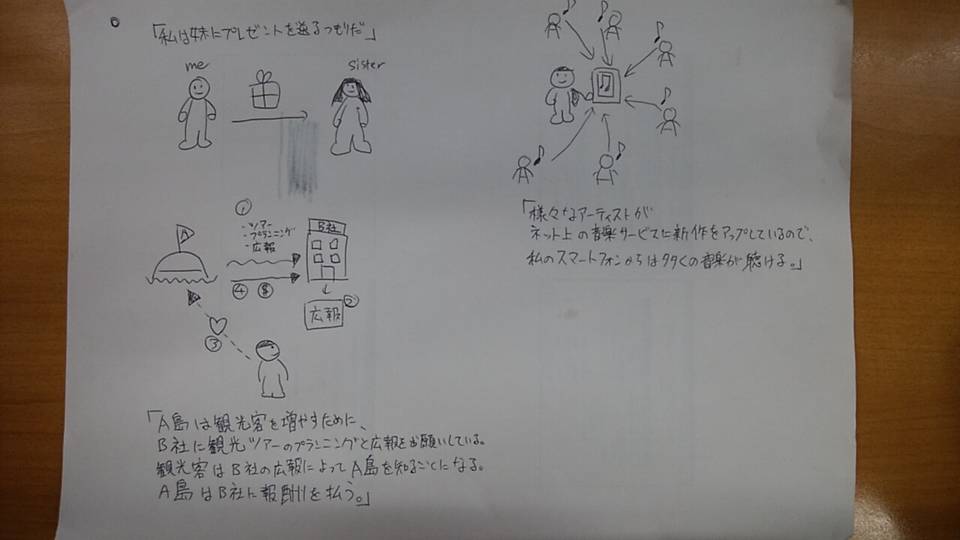 「私は妹にプレゼントを送るつもりだ」
me
sister
①
・ツアー
プランニング
・広報
A
B社
④ ⑧
広報 ②
③
「A島は観光客を増やすために、
B社に観光ツアーのプランニングと広報をお願いしている。
観光客はB社の広報によってA島を知ることになる。
A島はB社に報酬を払う。」
「様々なアーティストが
ネット上の音楽サービスに新作をアップしているので、
私のスマートフォンからは多くの音楽が聴ける。」